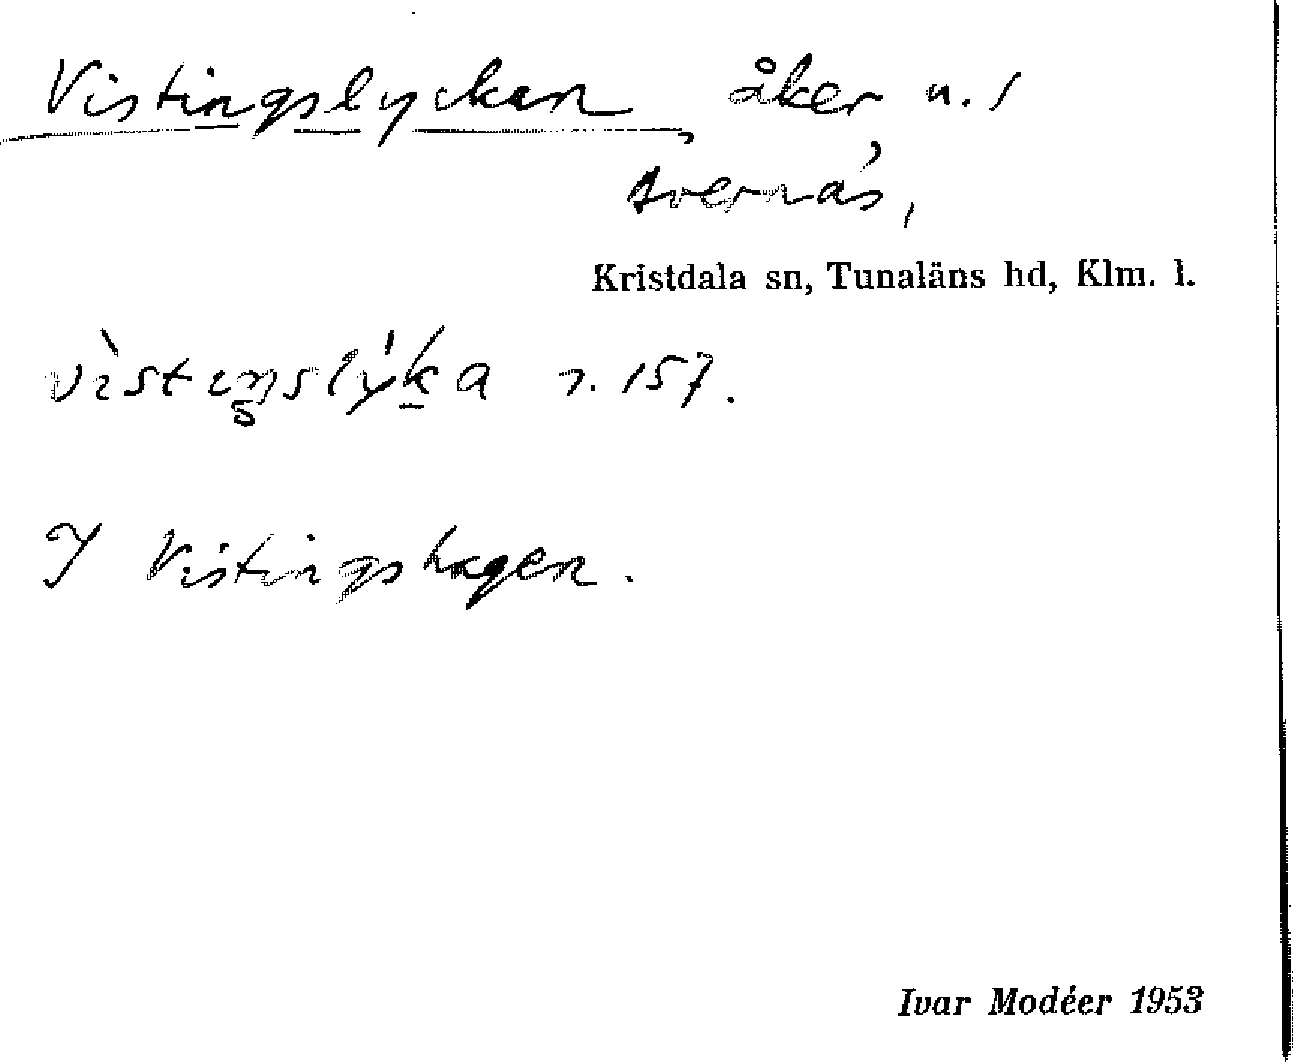 Vistingslyckan, åker n. 1
Avernäs,
Kristdala sn, Tunaläns hd, Klm. l.
vìstıŋslýka n. 157.
I Vistingshagen.
Ivar Modéer 1953